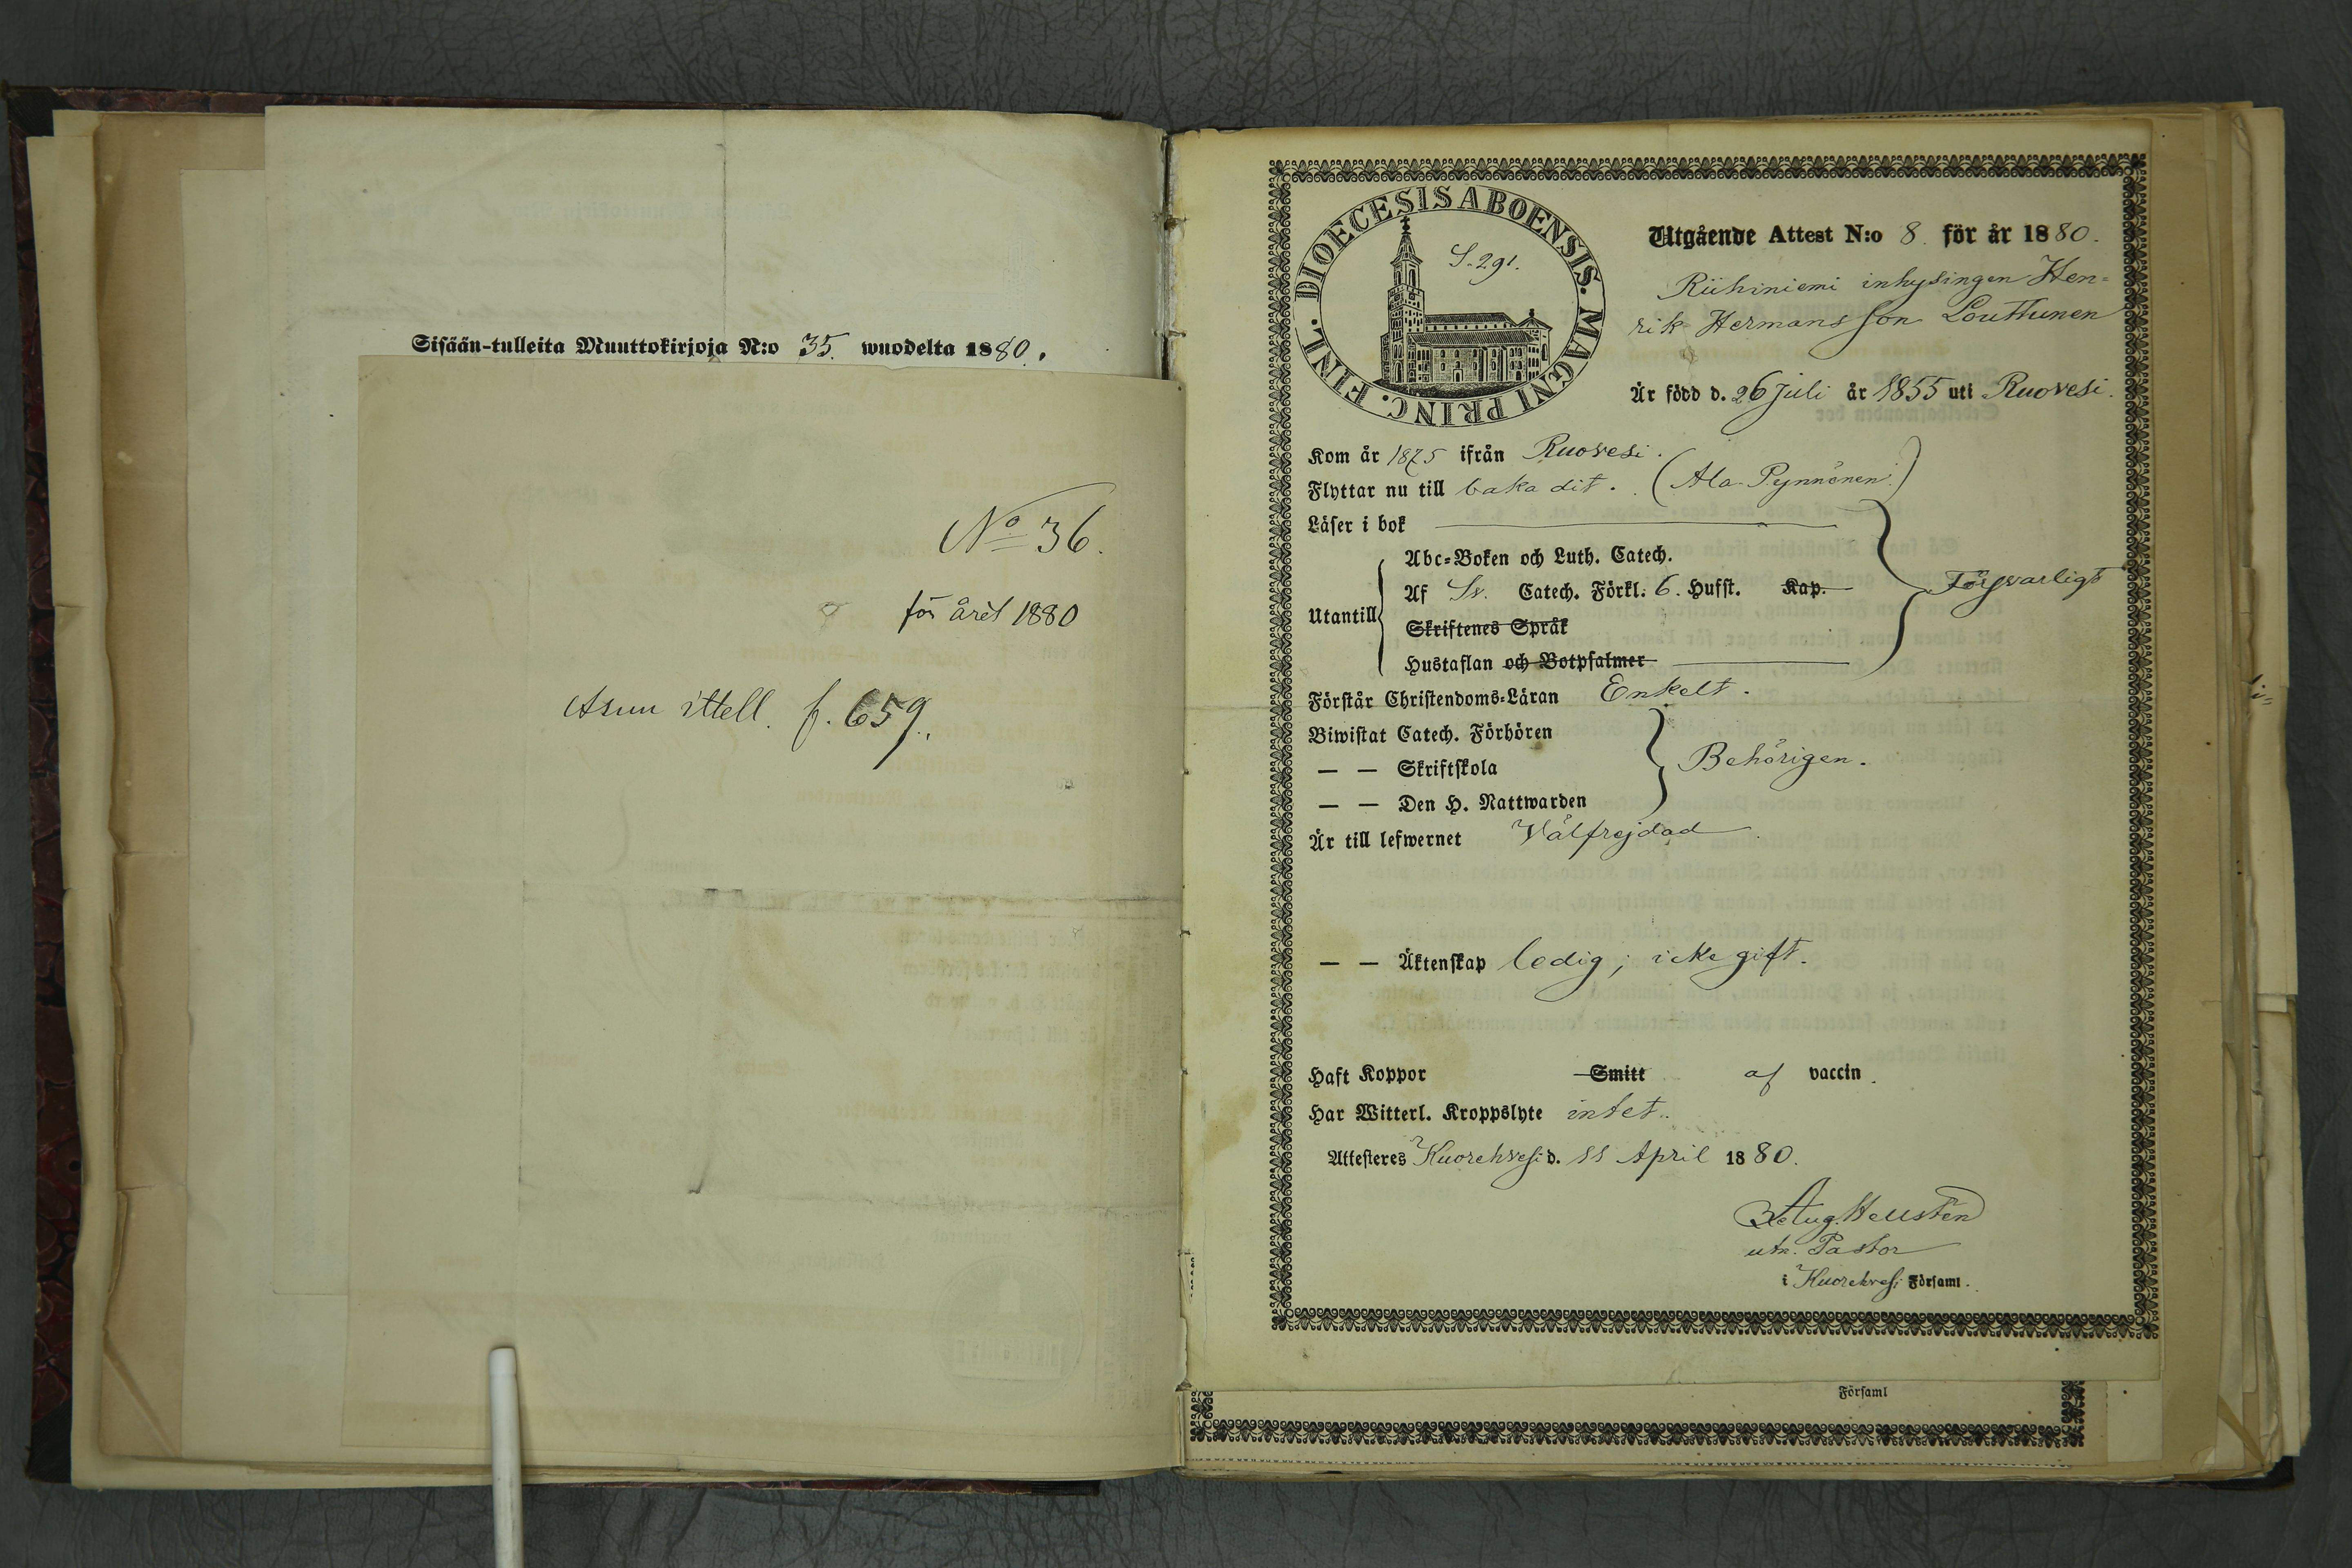 Sisään-tulleita Muuttokirjoja N:o 35. wuodelta 1880.
No 36.
för året 1880
Asun ittell. f. 659.
DIOECESIS ABOENSIS. MAGNI PRINC. FINL.
S. 291.
Utgående Attest N:o 8 för år 1880.
Riihiniemi inhysingen Hen-
rik Hermansson Louttunen
Är född d. 26 Juli år 1855 uti Ruovesi.
Kom år 1875 ifrån Ruovesi.
Flyttar nu till baka dit. (Ala-Pynnönen)
Läser i bok
Abc-Boken och Luth. Catech.
Utantill
Af Sv. Catech. Förkl. 6. Hufst. Kap.
Försvarligt
Skriftenes Språk
Hustaflan och Botpsalmer
Förstår Christendoms-Läran Enkelt.
Biwistat Catech. Förhören
— — Skriftskola
Behörigen.
— — Den H. Nattwarden
Är till lefwernet Välfrejdad
— — Äktenskap ledig; icke gift.
Haft Koppor Smitt af vaccin
Har Witterl. Kroppslyte intet.
Attesteres Kuorehvesi d. 11 April 1880.
Aug. Hellsten
utn. Pastor
i Kuorehvesi Församl.
Församl